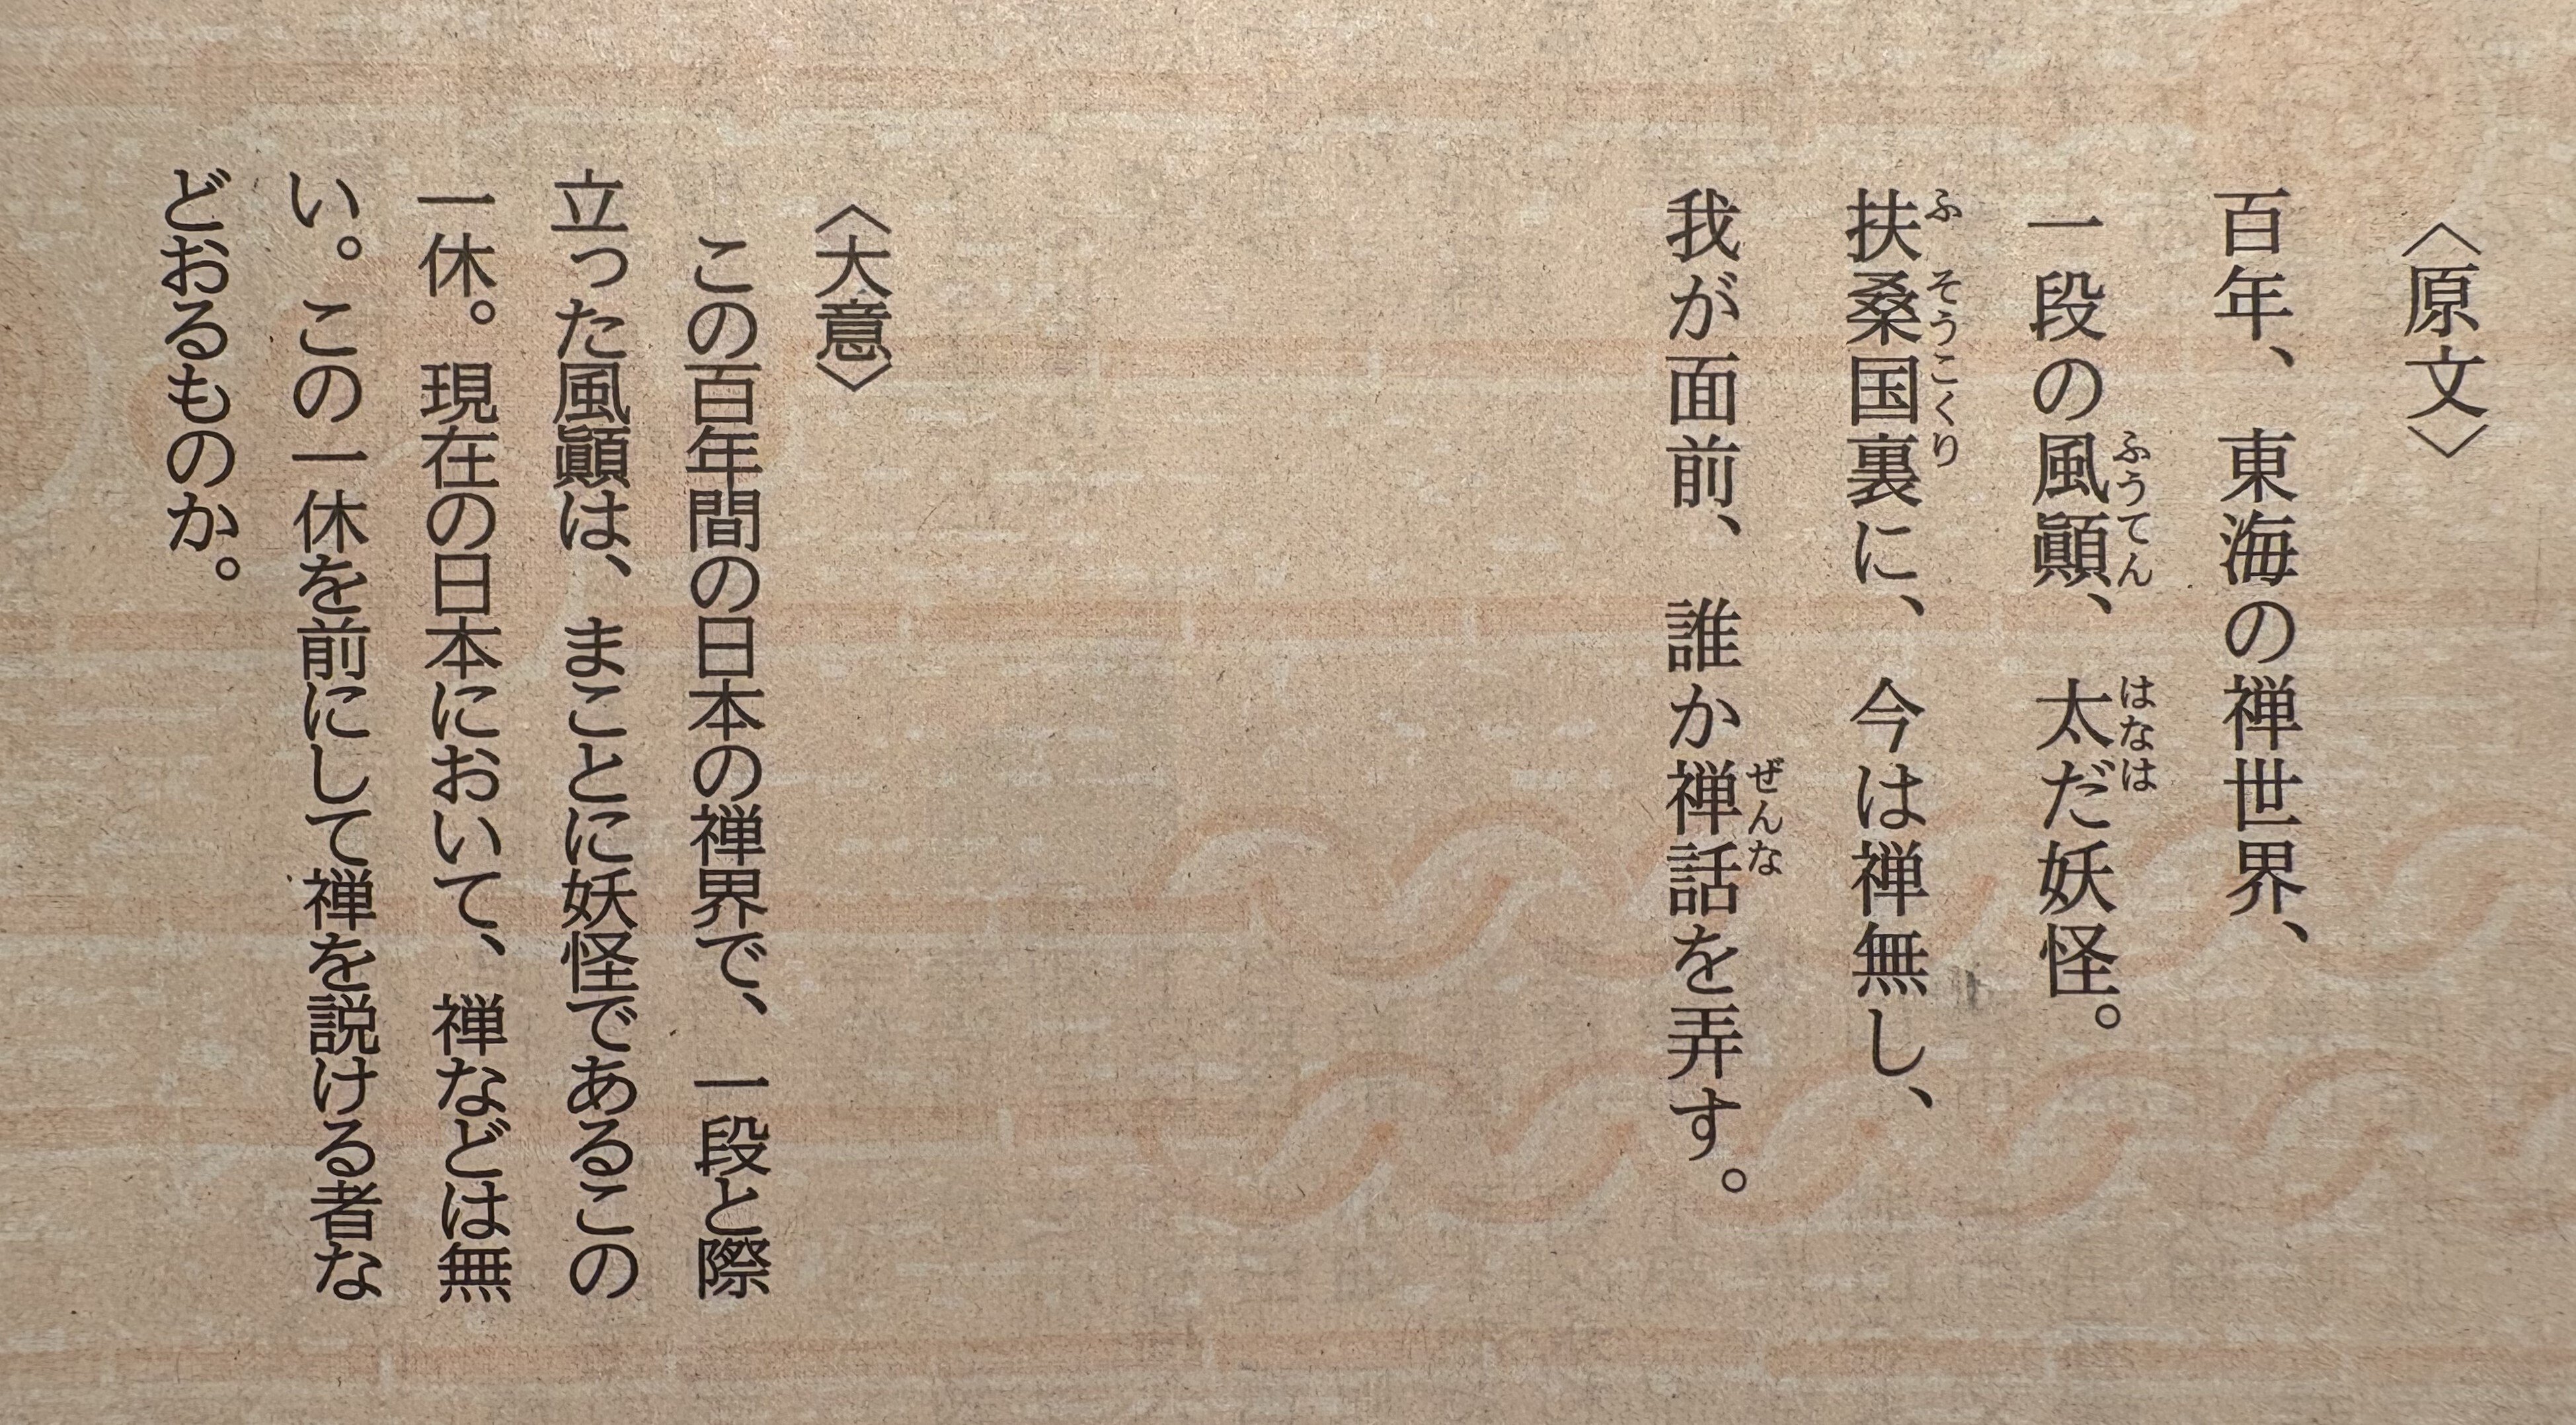 〈原文〉
百年、東海の禅世界、
一段の風顚、太だ妖怪。
ふうてん
はなは
扶桑国裏に、今は禅無し、
ふそうこくり
我が面前、誰か禅話を弄す。
ぜんな
〈大意〉
この百年間の日本の禅界で、一段と際
立った風顚は、まことに妖怪であるこの
一休。現在の日本において、禅などは無
い。この一休を前にして禅を説ける者な
どおるものか。